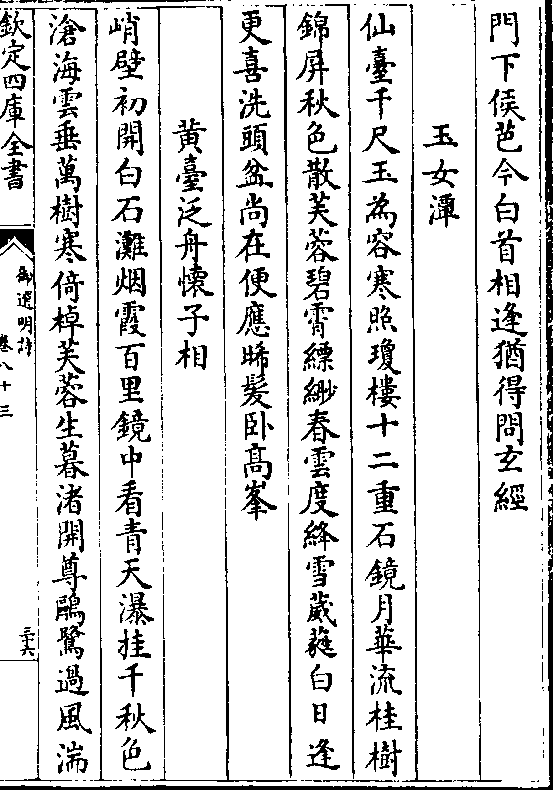 門下侯芭今白首相逢猶得問玄經
玉女潭
仙臺千尺玉為容寒照瓊樓十二重石鏡月華流桂樹
錦屏秋色散芙蓉碧霄縹緲春雲度絳雪葳蕤白日逢
更喜洗頭盆尚在便應晞髮卧髙峯
黄臺泛舟懷子相
峭壁初開白石灘烟霞百里鏡中看青天瀑挂千秋色
滄海雲垂萬樹寒倚棹芙蓉生暮渚開尊鷗鷺過風湍
欽定四庫全書
御選明詩
卷八十三
三十六